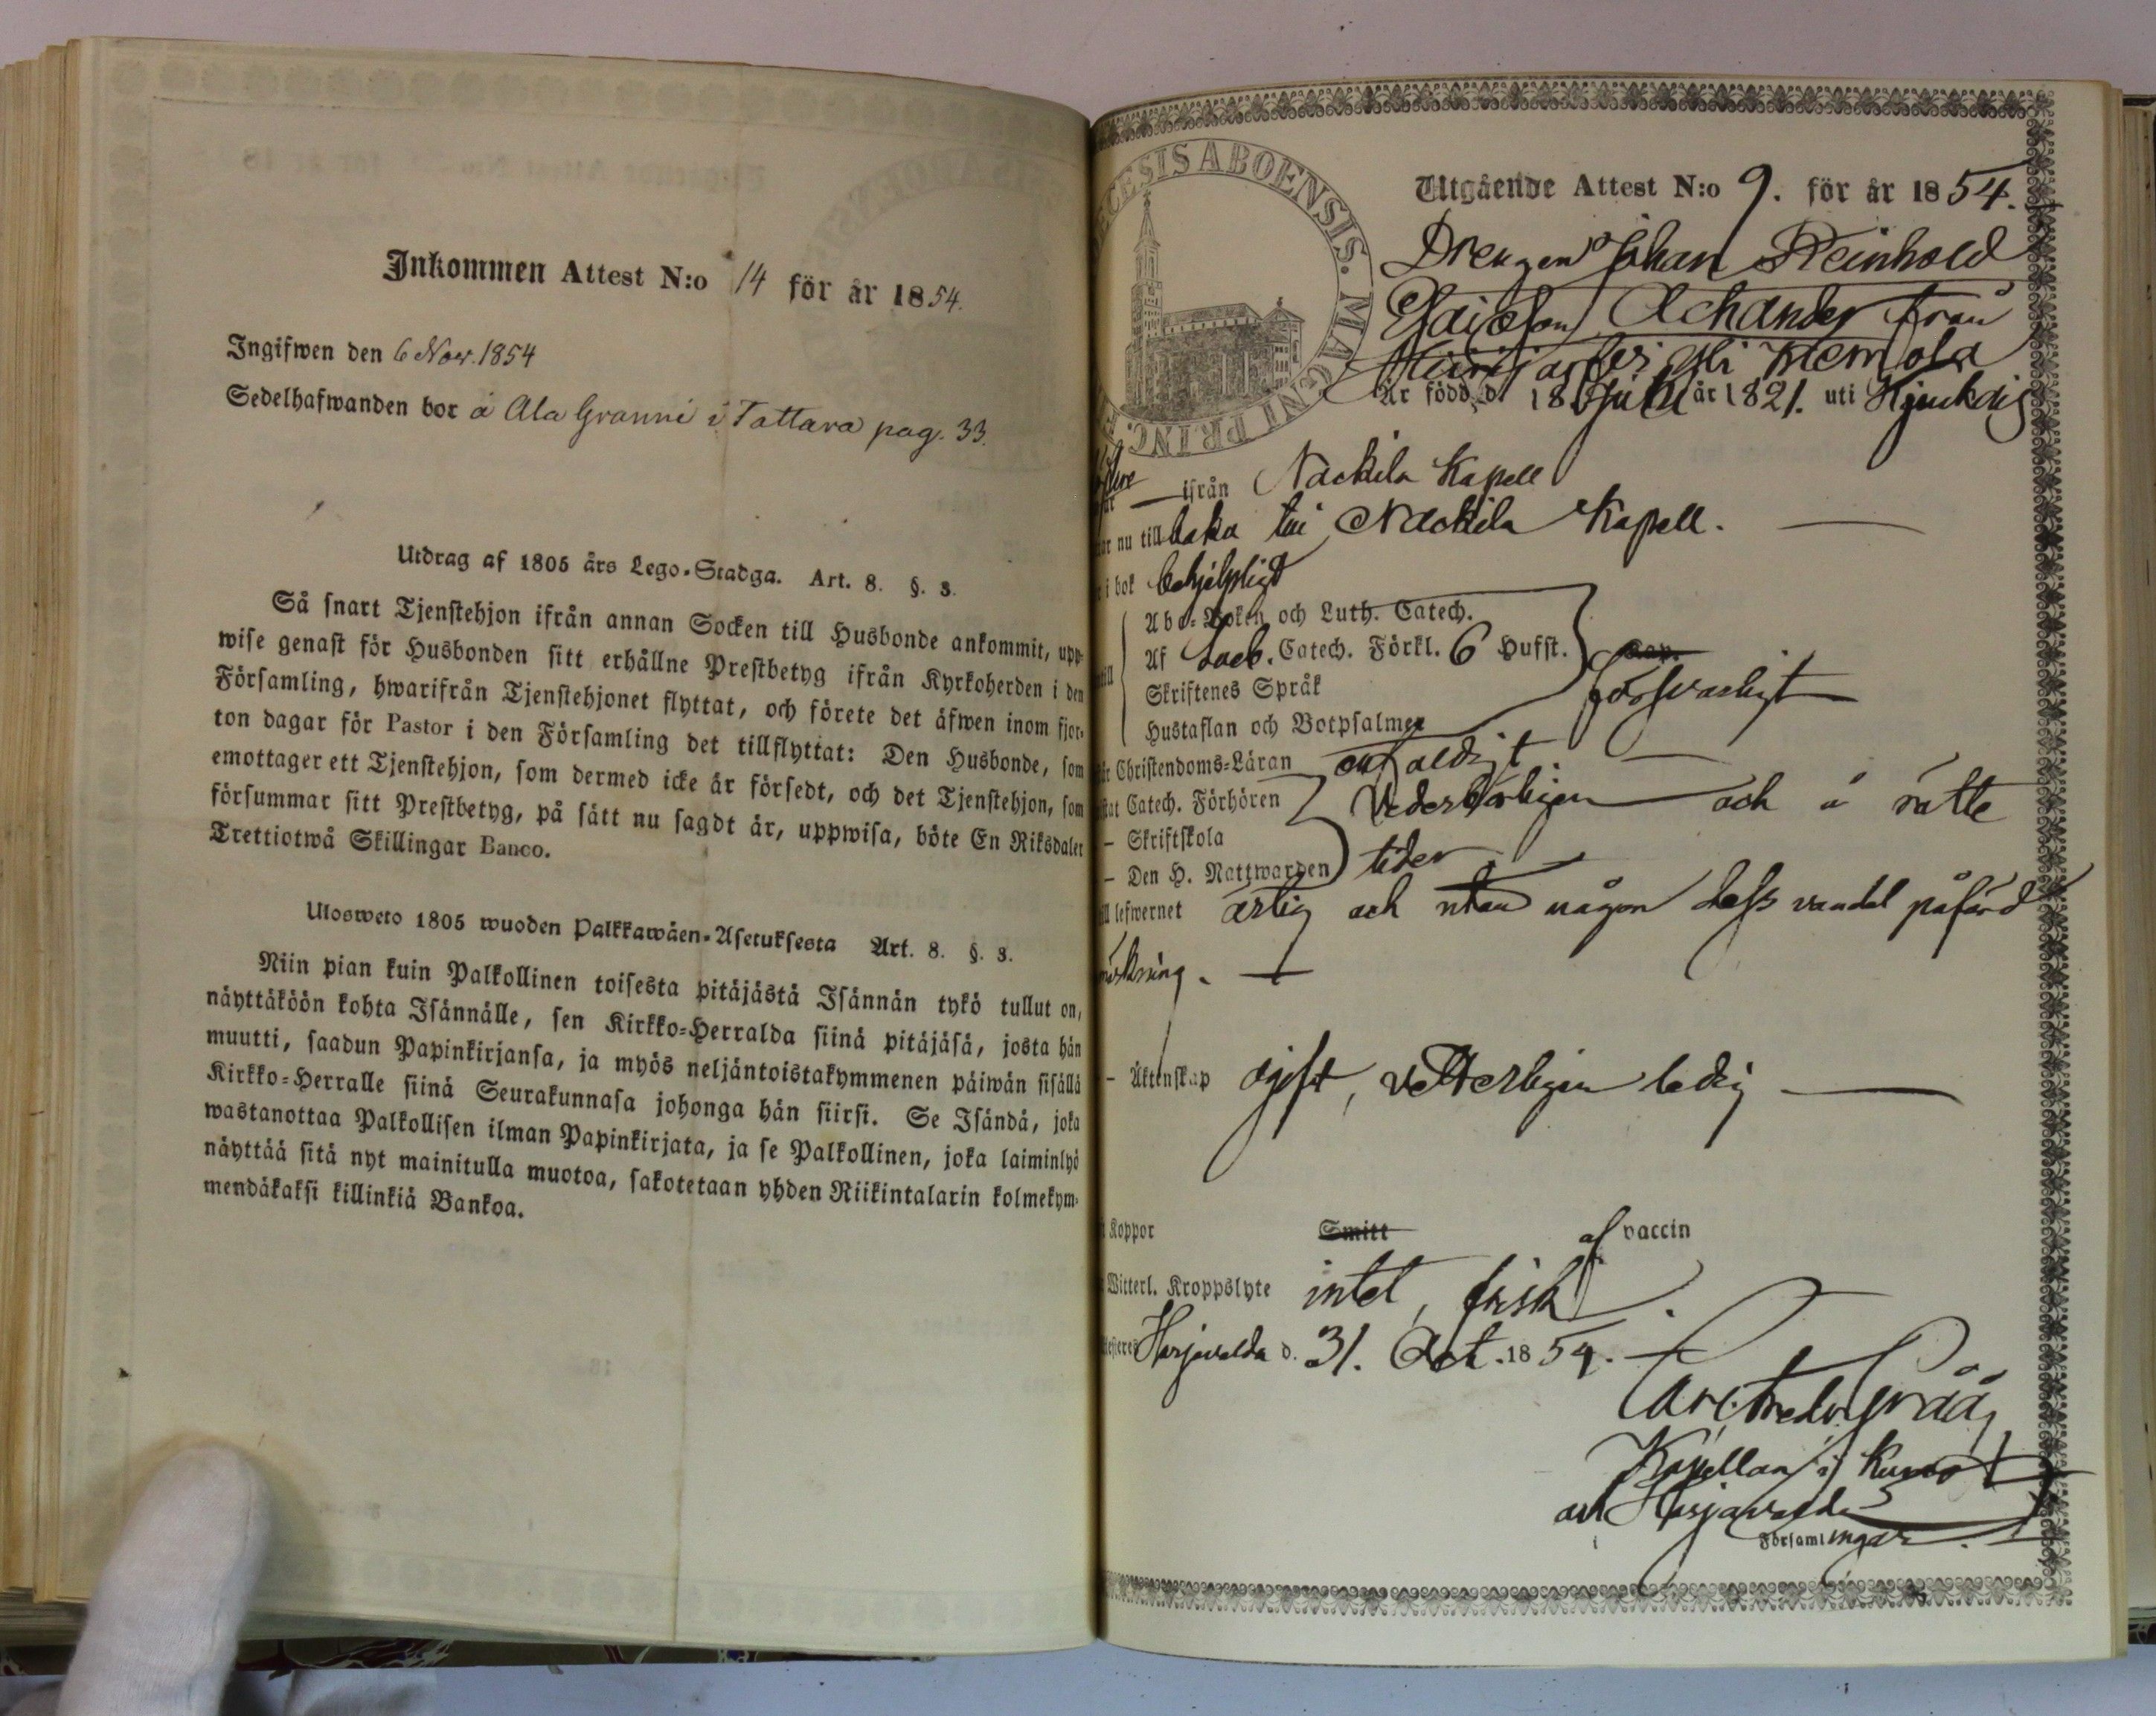 Inkommen Attest N:o 14 för år 1854.
Ingifwen den 6 Nov. 1854
Sedelhafwanden bor å Ala Granni i Tattara pag. 33.
Utdrag af 1805 års Lego-Stadga. Art. 8. §. 3.
Så snart Tjenstehjon ifrån annan Socken till Husbonde ankommit, upp-
wise genast för Husbonden sitt erhållne Prestbetyg ifrån Kyrkoherden i den
Församling, hwarifrån Tjenstehjonet flyttat, och förete det äfwen inom fjor-
ton dagar för Pastor i den Församling det tillflyttat: Den Husbonde, som
emottager ett Tjenstehjon, som dermed icke är försedt, och det Tjenstehjon, som
försummar sitt Prestbetyg, på sätt nu sagdt är, uppwisa, böte En Riksdaler
Trettiotwå Skillingar Banco.
Ulosweto 1805 wuoden Palkkawäen-Asetuksesta Art. 8. §. 3.
Niin pian kuin Palkollinen toisesta pitäjästä Isännän tykö tullut on,
näyttäköön kohta Isännälle, sen Kirkko-Herralda siinä pitäjäsä, josta hän
muutti, saadun Papinkirjansa, ja myös neljäntoistakymmenen päiwän sisällä
Kirkko-Herralle siinä Seurakunnasa johonga hän siirsi. Se Isändä, joka
wastanottaa Palkollisen ilman Papinkirjata, ja se Palkollinen, joka laiminlyö
näyttää sitä nyt mainitulla muotoa, sakotetaan yhden Riikintalarin kolmekym-
mendäkaksi killinkiä Bankoa.
DIOECESIS ABOENSIS. MAGNI PRINC. F
Utgående Attest N:o 9. för år 1854.
Drengen Johan Reinhold
Esaiasson Achander från
Är född d. 18 Juli år 1821. uti
ifrån Nackila Kapell
nu tillbaka till Nackila Kapell.
i bok behjelpligt
Abc-Boken och Luth. Catech.
Af Cateh. Förkl. 6 Hufst. Cap.
Skriftenes Språk försvarligt
Hustaflan och Botpsalmer
Christendoms-Läran enfaldigt
Catech. Förhören vederbörligen och å rätte
– Skriftskola
– Den H. Nattwarden tider
lefwernet ärlig och utan någon dess vandel påförd
– Äktenskap ogift, vetterligen ledig
Koppor Smitt af vaccin
Witterl. Kroppslyte intet, frisk.
Harjavalda d. 31. Oct. 1854.
Carl Fredr. Grååj
Kapellan i Kumo
och Harjavalda
Församlingar.